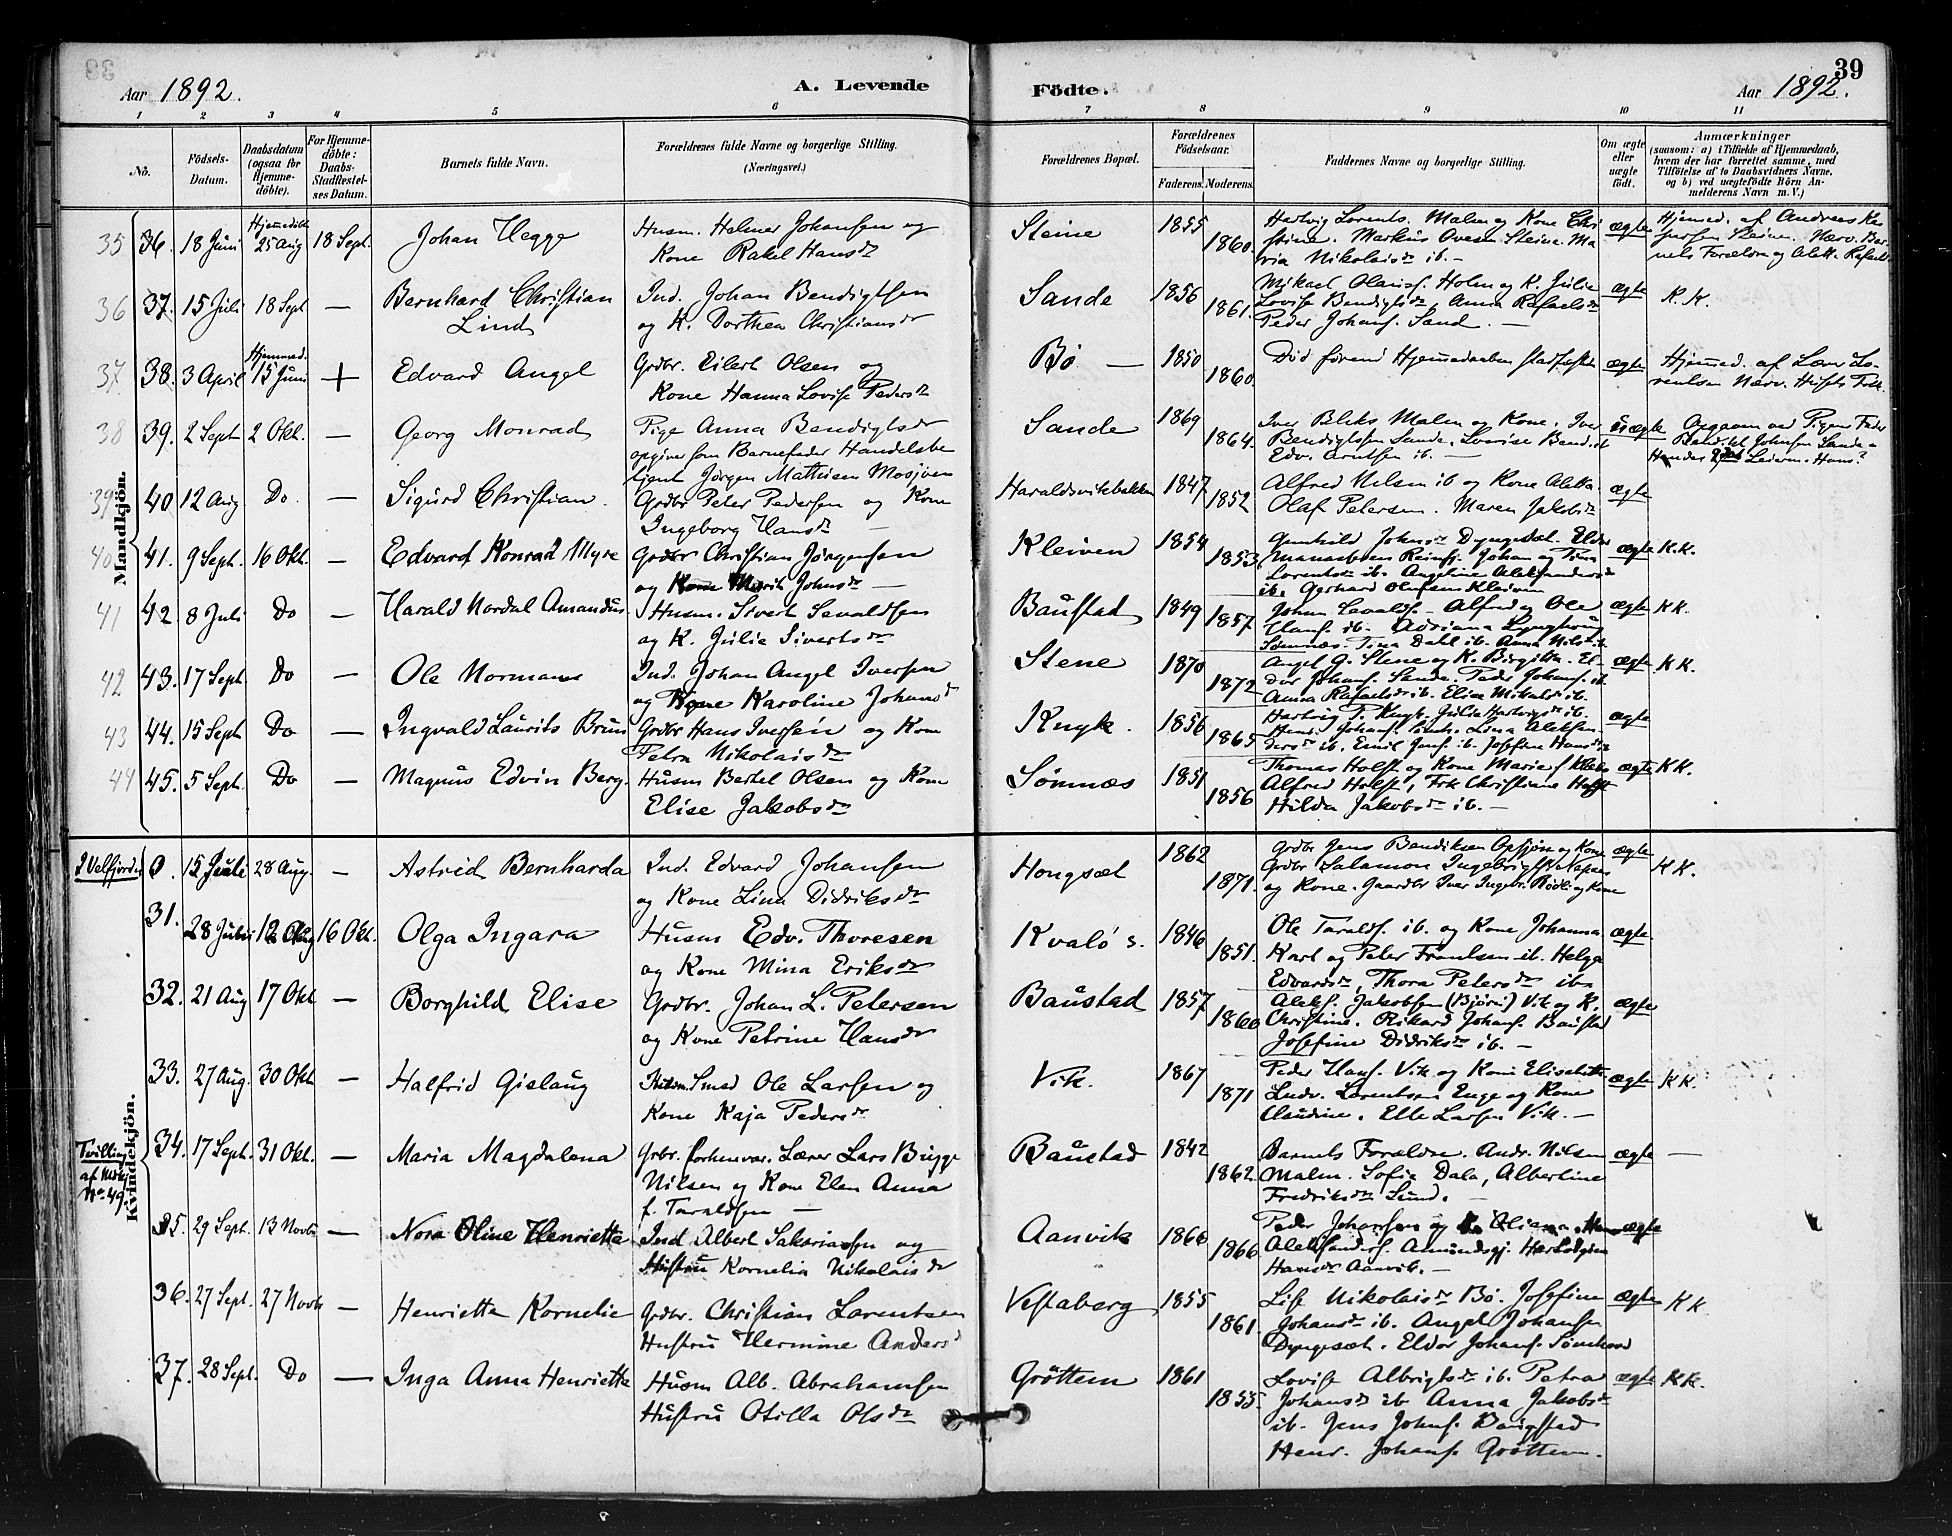 39
Aar 1892.
A. Levende
Födte.
Aar 1892.
1 2 3 4 5 6 7 8 9 10 11
No.
Födsels-Datum.
Daabsdatum (ogsaa för Hjemme-döbte).
For Hjemme-döbte: Daabs-Stadfæstel-ses Datum.
Barnets fulde Navn.
Forældrenes fulde Navne og borgerlige Stilling.
(Næringsvei.)
Forældrenes Bopæl.
Forældrenes Födselsaar.
Faderens. Moderens.
Faddernes Navne og borgerlige Stilling.
Om ægte eller uægte födt.
Anmærkninger
(saasom: a) i Tilfælde af Hjemmedaab, hvem der har forrettet samme, med Tilföielse af to Daabsvidners Navne, og b) ved uægtefödte Börn Anmelderens Navn m. V.)
Mandkjön.
35 36. 18 Juni Hjemmedöbt 25 Aug 18 Sept. Johan Hegge Husm. Helmer Johansen og
Kone Rakel Hansdr
Steine 1855 1860 Hartvig Lorents. Malm og Kone Chri
stine. Markus Ovesen Steine. Ma
ria Nikolaisdr ib. —
ægte Hjemmed. af Andreas
Steine. Nærv. Bar
nets Forældre og Aletta Rafaels
36 37. 15 Juli 18 Sept — Bernhard Christian
Lind
Ind. Johan Bendigtsen
og K. Dorthea Christiansdr
Sande 1856 1861. Mikael Olaisf. Holm og K. Julie
Lovise Bendigtsdr, Anna Rafaelsdr
Peder Johansf. Sand. —
ægte K. K.
37. 38. 3 April Hjemmed. 15 Juni + Edvard Angel Grdbr. Eilert Olsen og
Kone Hanna Lovise Pedersdr
Bö — 1850 1860. Död förend Hjemmedaaben stadfæstes ægte Hjemmed. af Lærer Lo-
rentsen Nærv.
38 39. 2 Sept 2 Okt. — Georg Monrad Pige Anna Bendigtsdr
opgiver som Barnefader Handelsbe
tjent Jörgen Mathisen Mosjöen
Sande 1869 1864. Iver Bleks Malm og Kone, Iver
Bendigtsen Sande. Lovise Bend.dr
Edv. Arntsen ib. —
uægte Opgaven ved Pigens Fader
Bendikt Johnsen Sande
39 40 12 Aug Do — Sigurd Christian. Grdbr Peter Pedersen og Kone
Ingeborg Hansdr —
Haraldsvikbakken 1847 1852 Alfred Nilsen ib og Kone Aletta.
Olaf Petersen. Maren Jakobsdr
ægte
40 41. 9 Sept. 16 Okt. — Edvard Konrad Myre Grdbr Christian Jörgensen
og Kone Marit Johnsdr —
Kleiven 1854 1853 Gunhild Johnsdr Dyngesæt. Eldor
Johan og Tina
Lorentsdr ib. Angeline Aleksandersdr
ib. Gerhard Olufsen Kleiven
ægte K. K.
41 42. 8 Juli Do — Harald Nordal Amandus Husm. Sivert Sevaldsen
og K. Julie Sivertsdr
Baustad 1849 1857 Johan Sevalds. — Alfred og Ole
Hansf. ib. Adriana
Sömnæs. Tina Dahl ib. Anna Nilsdr ib
ægte K K.
42 43. 17 Sept Do — Ole Normann Ind. Johan Angel Iversen
og Kone Karoline Johansdr
Stene 1870 1872 Angel G. Stene og K. Birgitta. El-
dor Johansf. Sande. Peder Johansf. ib.
Anna Rafaelsdr ib. Elise Mikalsdr ib.
ægte K K.
43 44. 15 Sept Do — Ingvald Laurits Brun Grdbr Hans Iversen og Kone
Petra Nikolaisdr
Knyk. 1856 1865 Hartvig P. Knyk. Julie Hartvigsdr ib.
Lina Aleksan
dersdr ib. Emil Jensf. ib. Josefine Hansdr
ægte
44 45. 5 Sept. Do — Magnus Edvin Berg. Husm Bertel Olsen og Kone
Elise Jakobsdr
Sömnæs 1851 1856 Thomas Holst og Kone Marie f.
Alfred Holst, Frk Christiane Holst
Hilda Jakobsdr ib. —
ægte K K.
Kvindekjön.
I Velfjorden 0. 15 Juli 28 Aug. — Astrid Bernharda Ind. Edvard Johansen
og Kone Lina Didriksdr
Hongsæt 1862 1871. Grdbr Jens Bendiksen Opsjön og Kone
Grdbr Salamon Ingebrigts
og Kone. Gaardbr Ivar Ingebr. Rödli og Kone
ægte K K.
31. 28 Juni 12 Aug 16 Okt. Olga Ingara Husm Edv. Thoresen
og Kone Mina Eriksdr
Kvalö s. 1846 1851. Ole Taraldsf. ib. og Kone Johanna
Karl og Peter Frantsen ib. Helga
Edvardsdr, Thora Petersdr ib.
ægte
32. 21 Aug 17 Okt — Borghild Elise Grdbr. Johan L. Petersen
og Kone Petrine Hansdr
Baustad 1857 1860 Aleksf. Jakobsen (Björn) Vik og K.
Christine. Rikard Johansf. Baustad
Josefine Didriksdr ib. —
ægte
33. 27 Aug. 30 Okt — Halfrid Gislaug Smed Ole Larsen og
Kone Kaja Pedersdr
Vik. 1867 1871 Peder Hansf. Vik og Kone Elisabeth
Ludv. Lorentsen Enge og Kone
Claudine. Elle Larsen Vik. —
ægte K K.
Tvilling af Mdkj No. 49. 34. 17 Sept. 31 Okt. — Maria Magdalena Grbr. forhenvær. Lærer Lars Bugge
Nilsen og Kone Elen Anna
f. Taraldsen —
Baustad 1842 1862 Barnets Forældre. Andr. Nilsen
Malm. Sofie Dala, Albertine
Fredriksdr Lund. —
ægte —
35. 29 Sept. 13 Novbr — Nora Oline Henriette Ind Albert Sakariassen og
Hustru Kornelia Nikolaisdr
Aanvik 1866 1866 Peder Johansen og K. Oliana
Aleksandersf. Amundsgj.
Hansdr Aanvik. —
ægte
36. 27 Sept. 27 Novbr — Henrietta Kornelie Grdbr. Christian Larentsen
Hustru Hermine Andersdr
Vestaberg 1855 1861. Lise Nikolaisdr Bö. Josefine
Johansdr ib. Angel Johansen
Dyngesæt. Eldor Johansf.
ægte K K.
37. 28 Sept. Do — Inga Anna Henriette Husm Alb. Abrahamsen
Hustru Otilla Olsdr
Gröttem 1861 1855. Lovise Albrigtsdr ib. Petra
Johansdr ib Anna Jakobsdr
ib. Jens Johnsf. Baugstad
Henr. Johansf. Gröttem.
ægte K K.